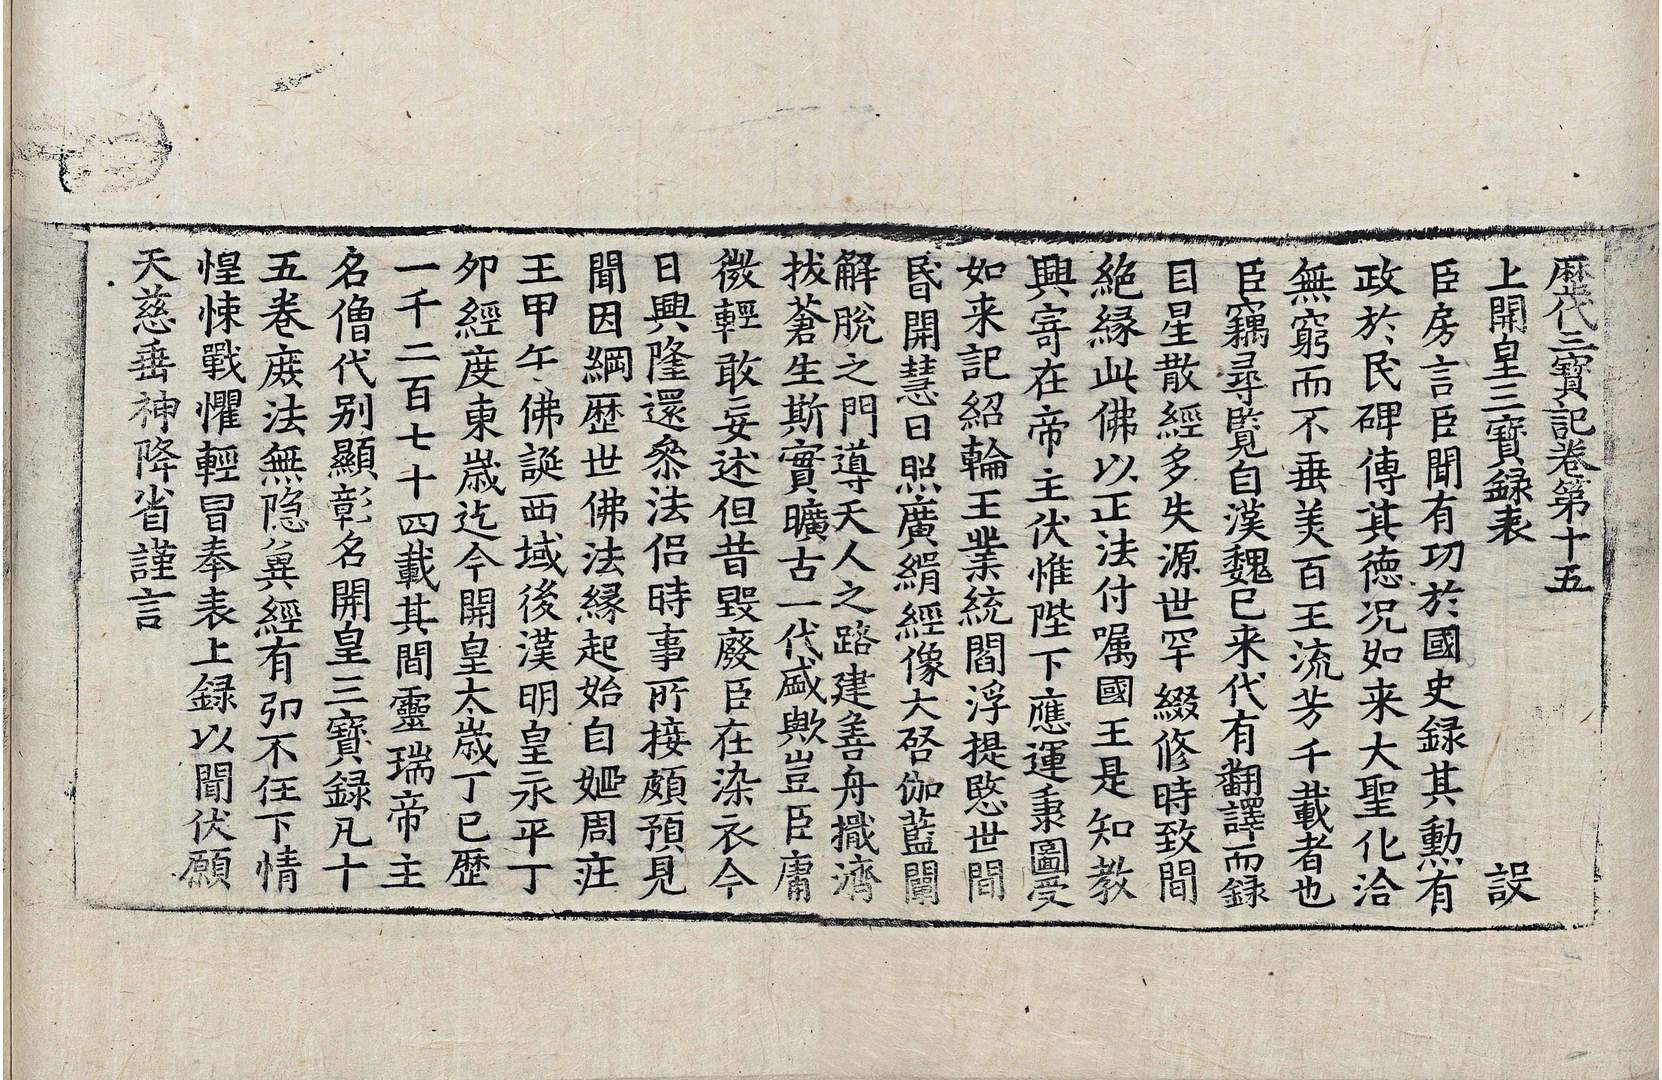 歷代三寶記卷第十五
上開皇三寶録表　誤
臣房言臣聞有功於國史録其勲有
政於民碑傳其德况如来大聖化洽
無窮而不垂美百王流芳千載者也
臣竊尋覽自漢魏已来代有翻譯而録
目星散經多失源世罕綴修時致間
絶緣此佛以正法付嘱國王是知教
興寄在帝主伏惟陛下應運秉圖受
如来記紹輪王業統閻浮提愍世間
昏開慧日照廣絹經像大啓伽藍闡
解脫之門導天人之路建善舟擑濟
拔蒼生斯實曠古一代盛歟豈臣庸
微輕敢妄述但昔毀廢臣在染衣今
日興隆還叅法侶時事所接頗預見
聞因綱歷世佛法緣起始自姬周㽵
王甲午佛誕西域後漢明皇永平丁
夘經度東歲迄今開皇太歲丁巳歷
一千二百七十四載其間靈瑞帝主
名僧代别顯彰名開皇三寶録凡十
五卷庻法無隐冀經有卬不任下情
惶悚戰懼輕冒奉表上録以聞伏願
天慈垂神降省謹言